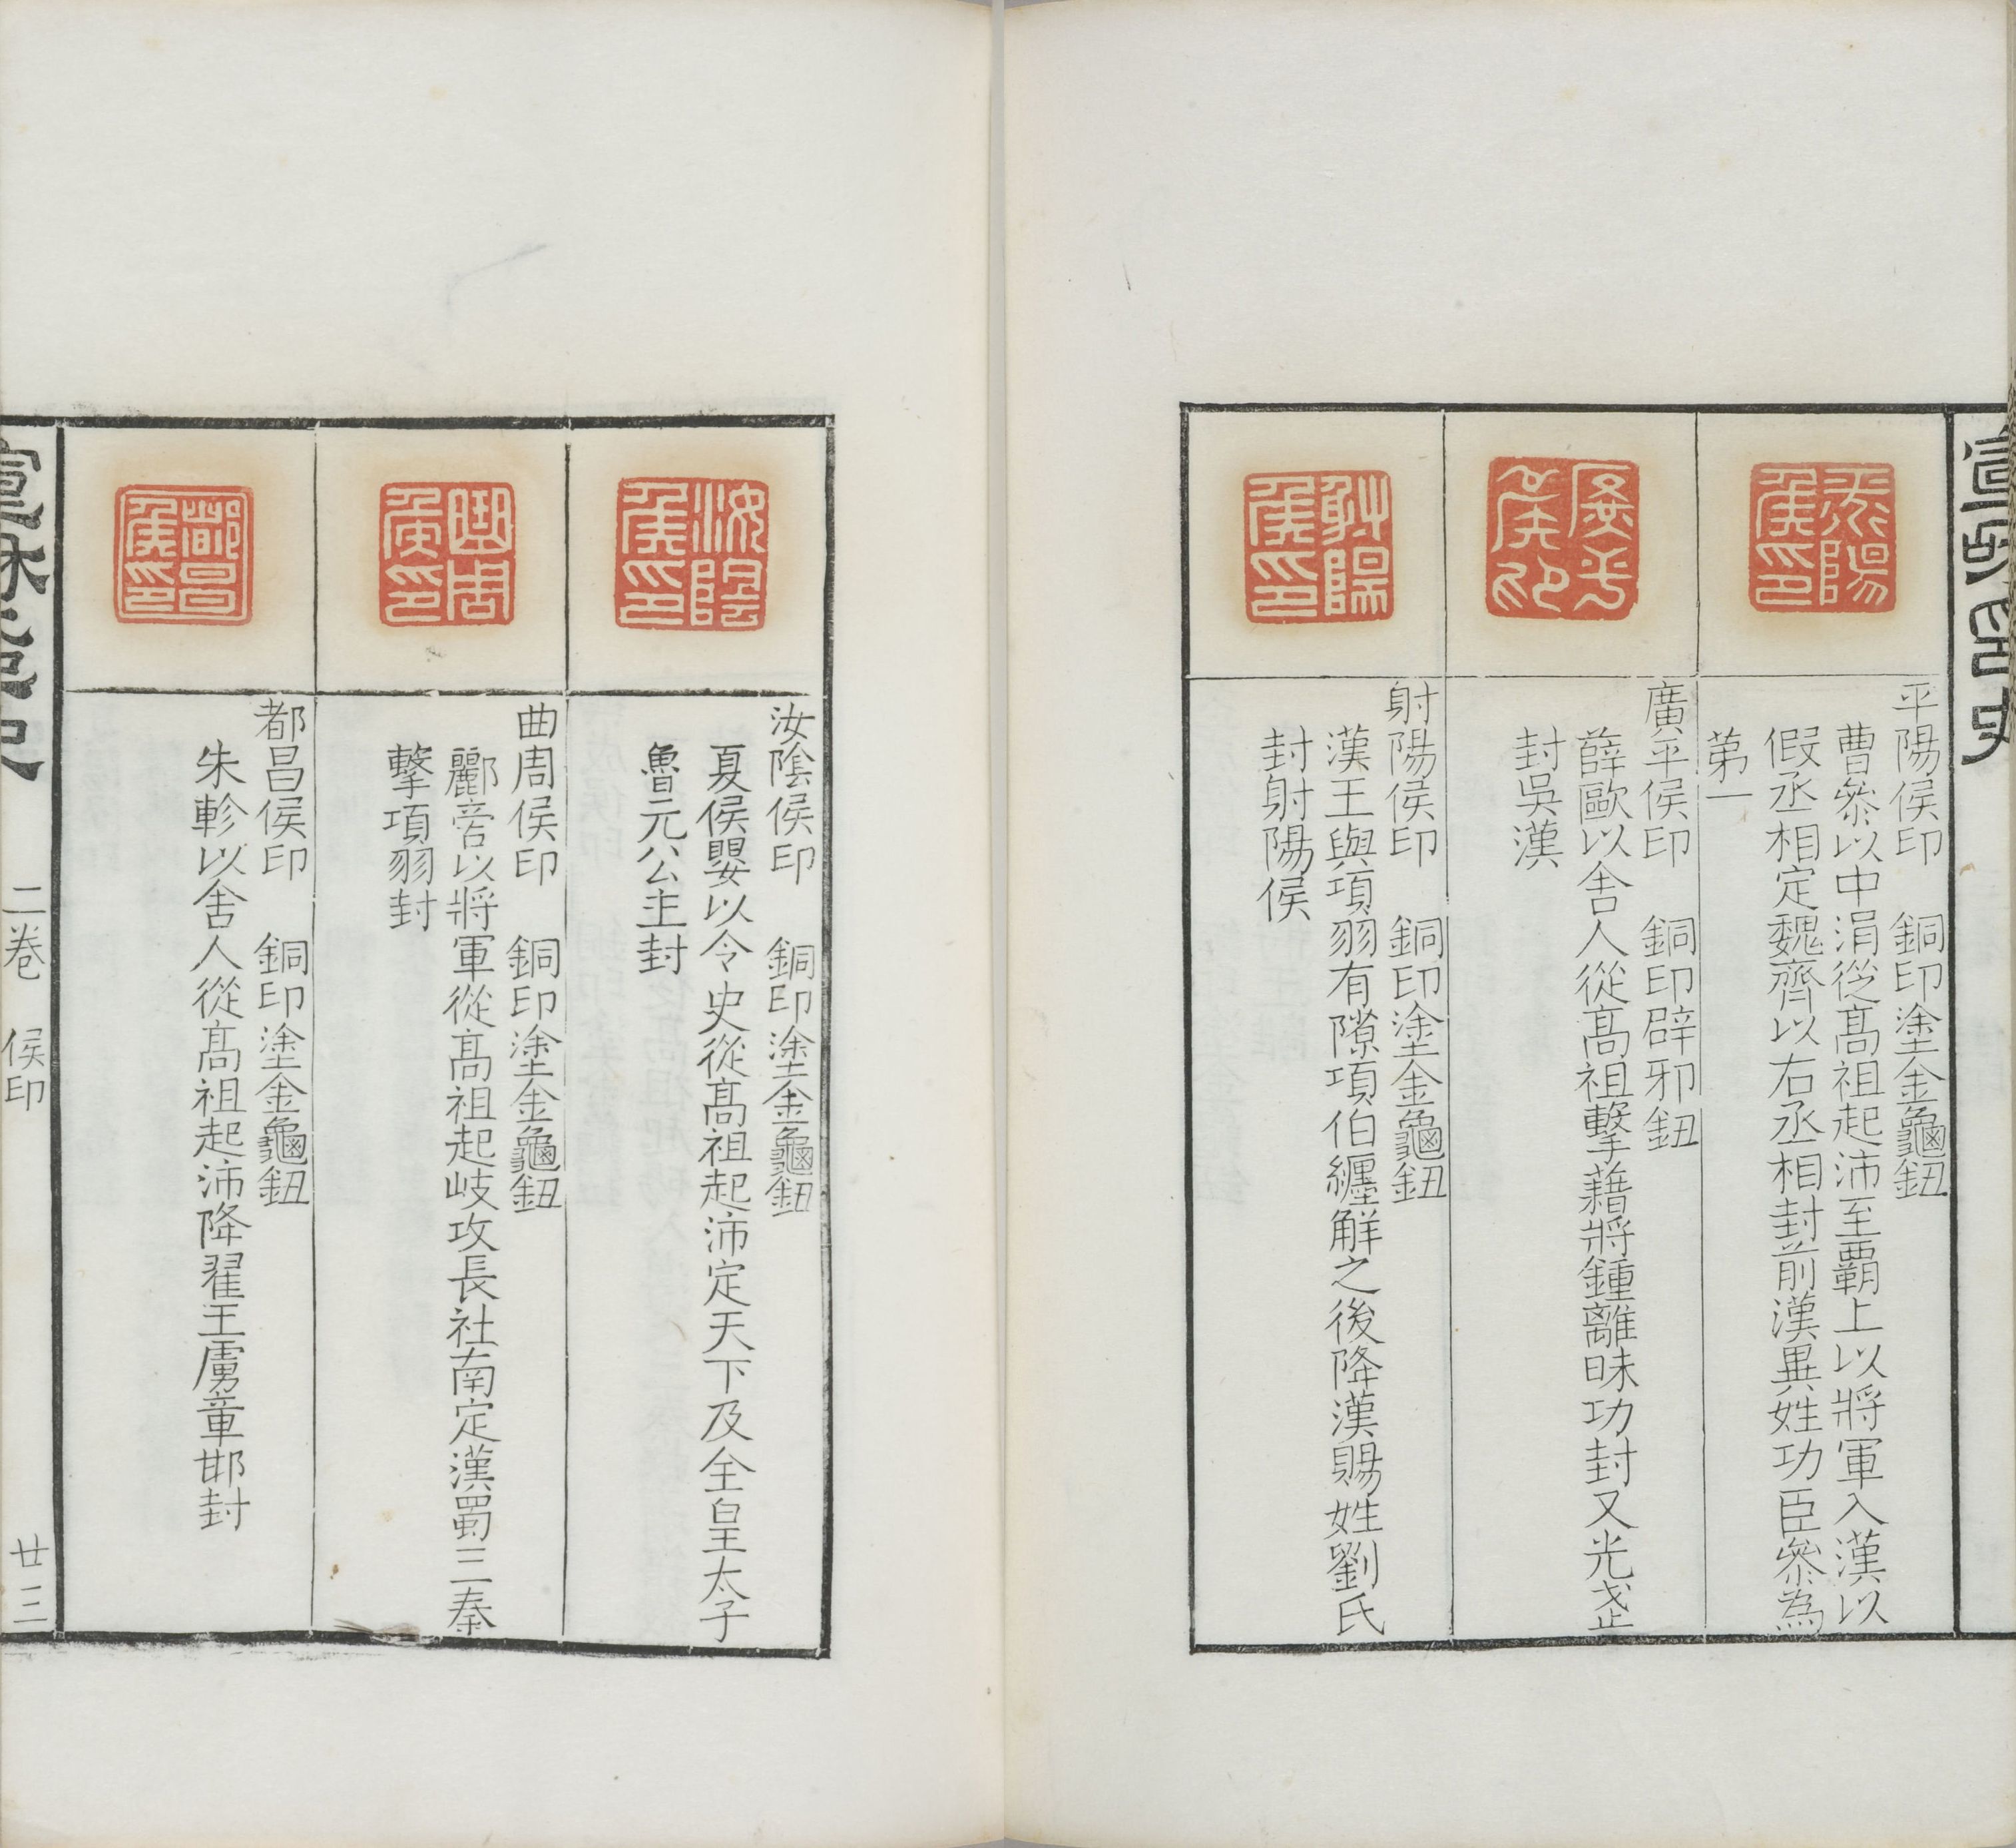 平陽侯印
平陽侯印 銅印塗金龜鈕
曹參以中涓從髙祖起沛至霸上以將軍入漢以
假丞相定魏齊以右丞相封前漢異姓功臣參為
第一
廣平侯印
廣平侯印 銅印辟邪鈕
薛歐以舍人從髙祖擊藉將鍾離昧功封又光武
封吳漢
射陽侯印
射陽侯印 銅印塗金龜鈕
漢王與項羽有隙項伯纏解之後降漢賜姓劉氏
封射陽侯
汝陰侯印
汝陰侯印 銅印塗金龜鈕
夏侯嬰以令史從髙祖起沛定天下及全皇太子
魯元公主封
曲周侯印
曲周侯印 銅印塗金龜鈕
酈啇以將軍從髙祖起岐攻長社南定漢蜀三秦
擊項羽封
都昌侯印
都昌侯印 銅印塗金龜鈕
朱軫以舍人從髙祖起沛降翟王虜章邯封
二卷 侯印 廿三